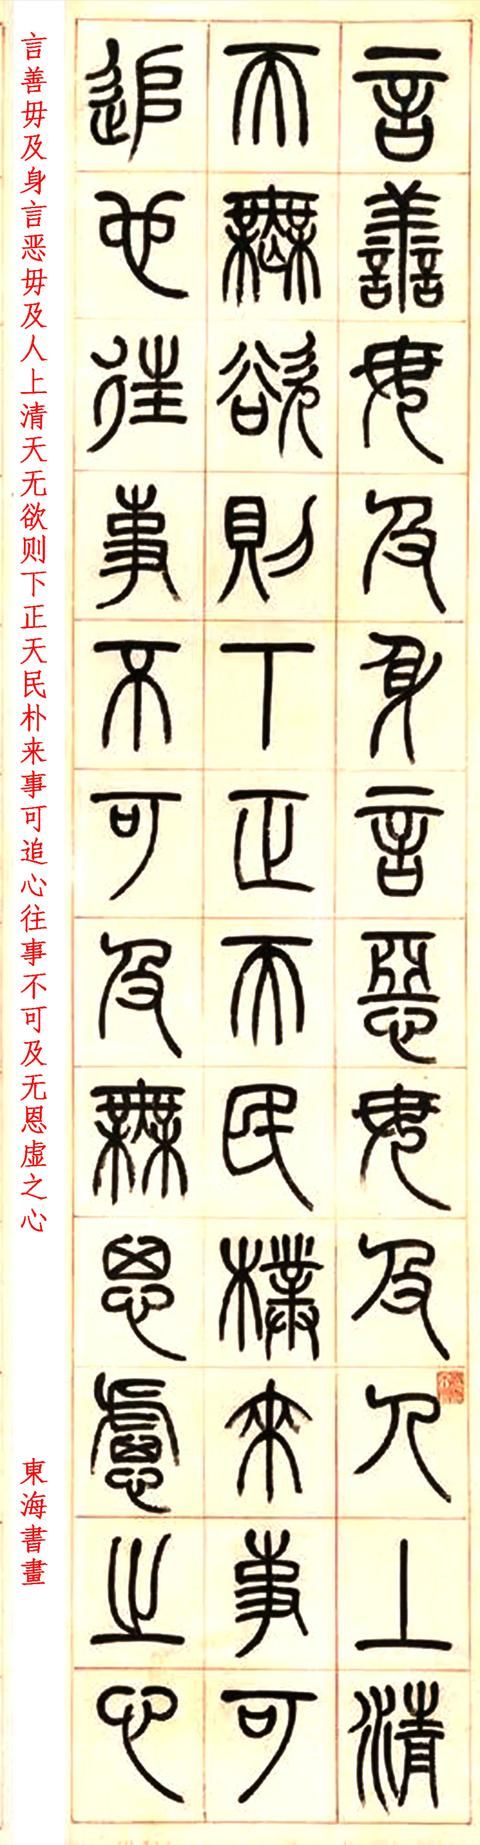 言善毋及身言惡毋及人上清
而無欲則下正而民樸來事可
追也往事不可及無思慮之心
言善毋及身言恶毋及人上清天无欲则下正天民朴来事可追心往事不可及无恩虚之心
東海書畫